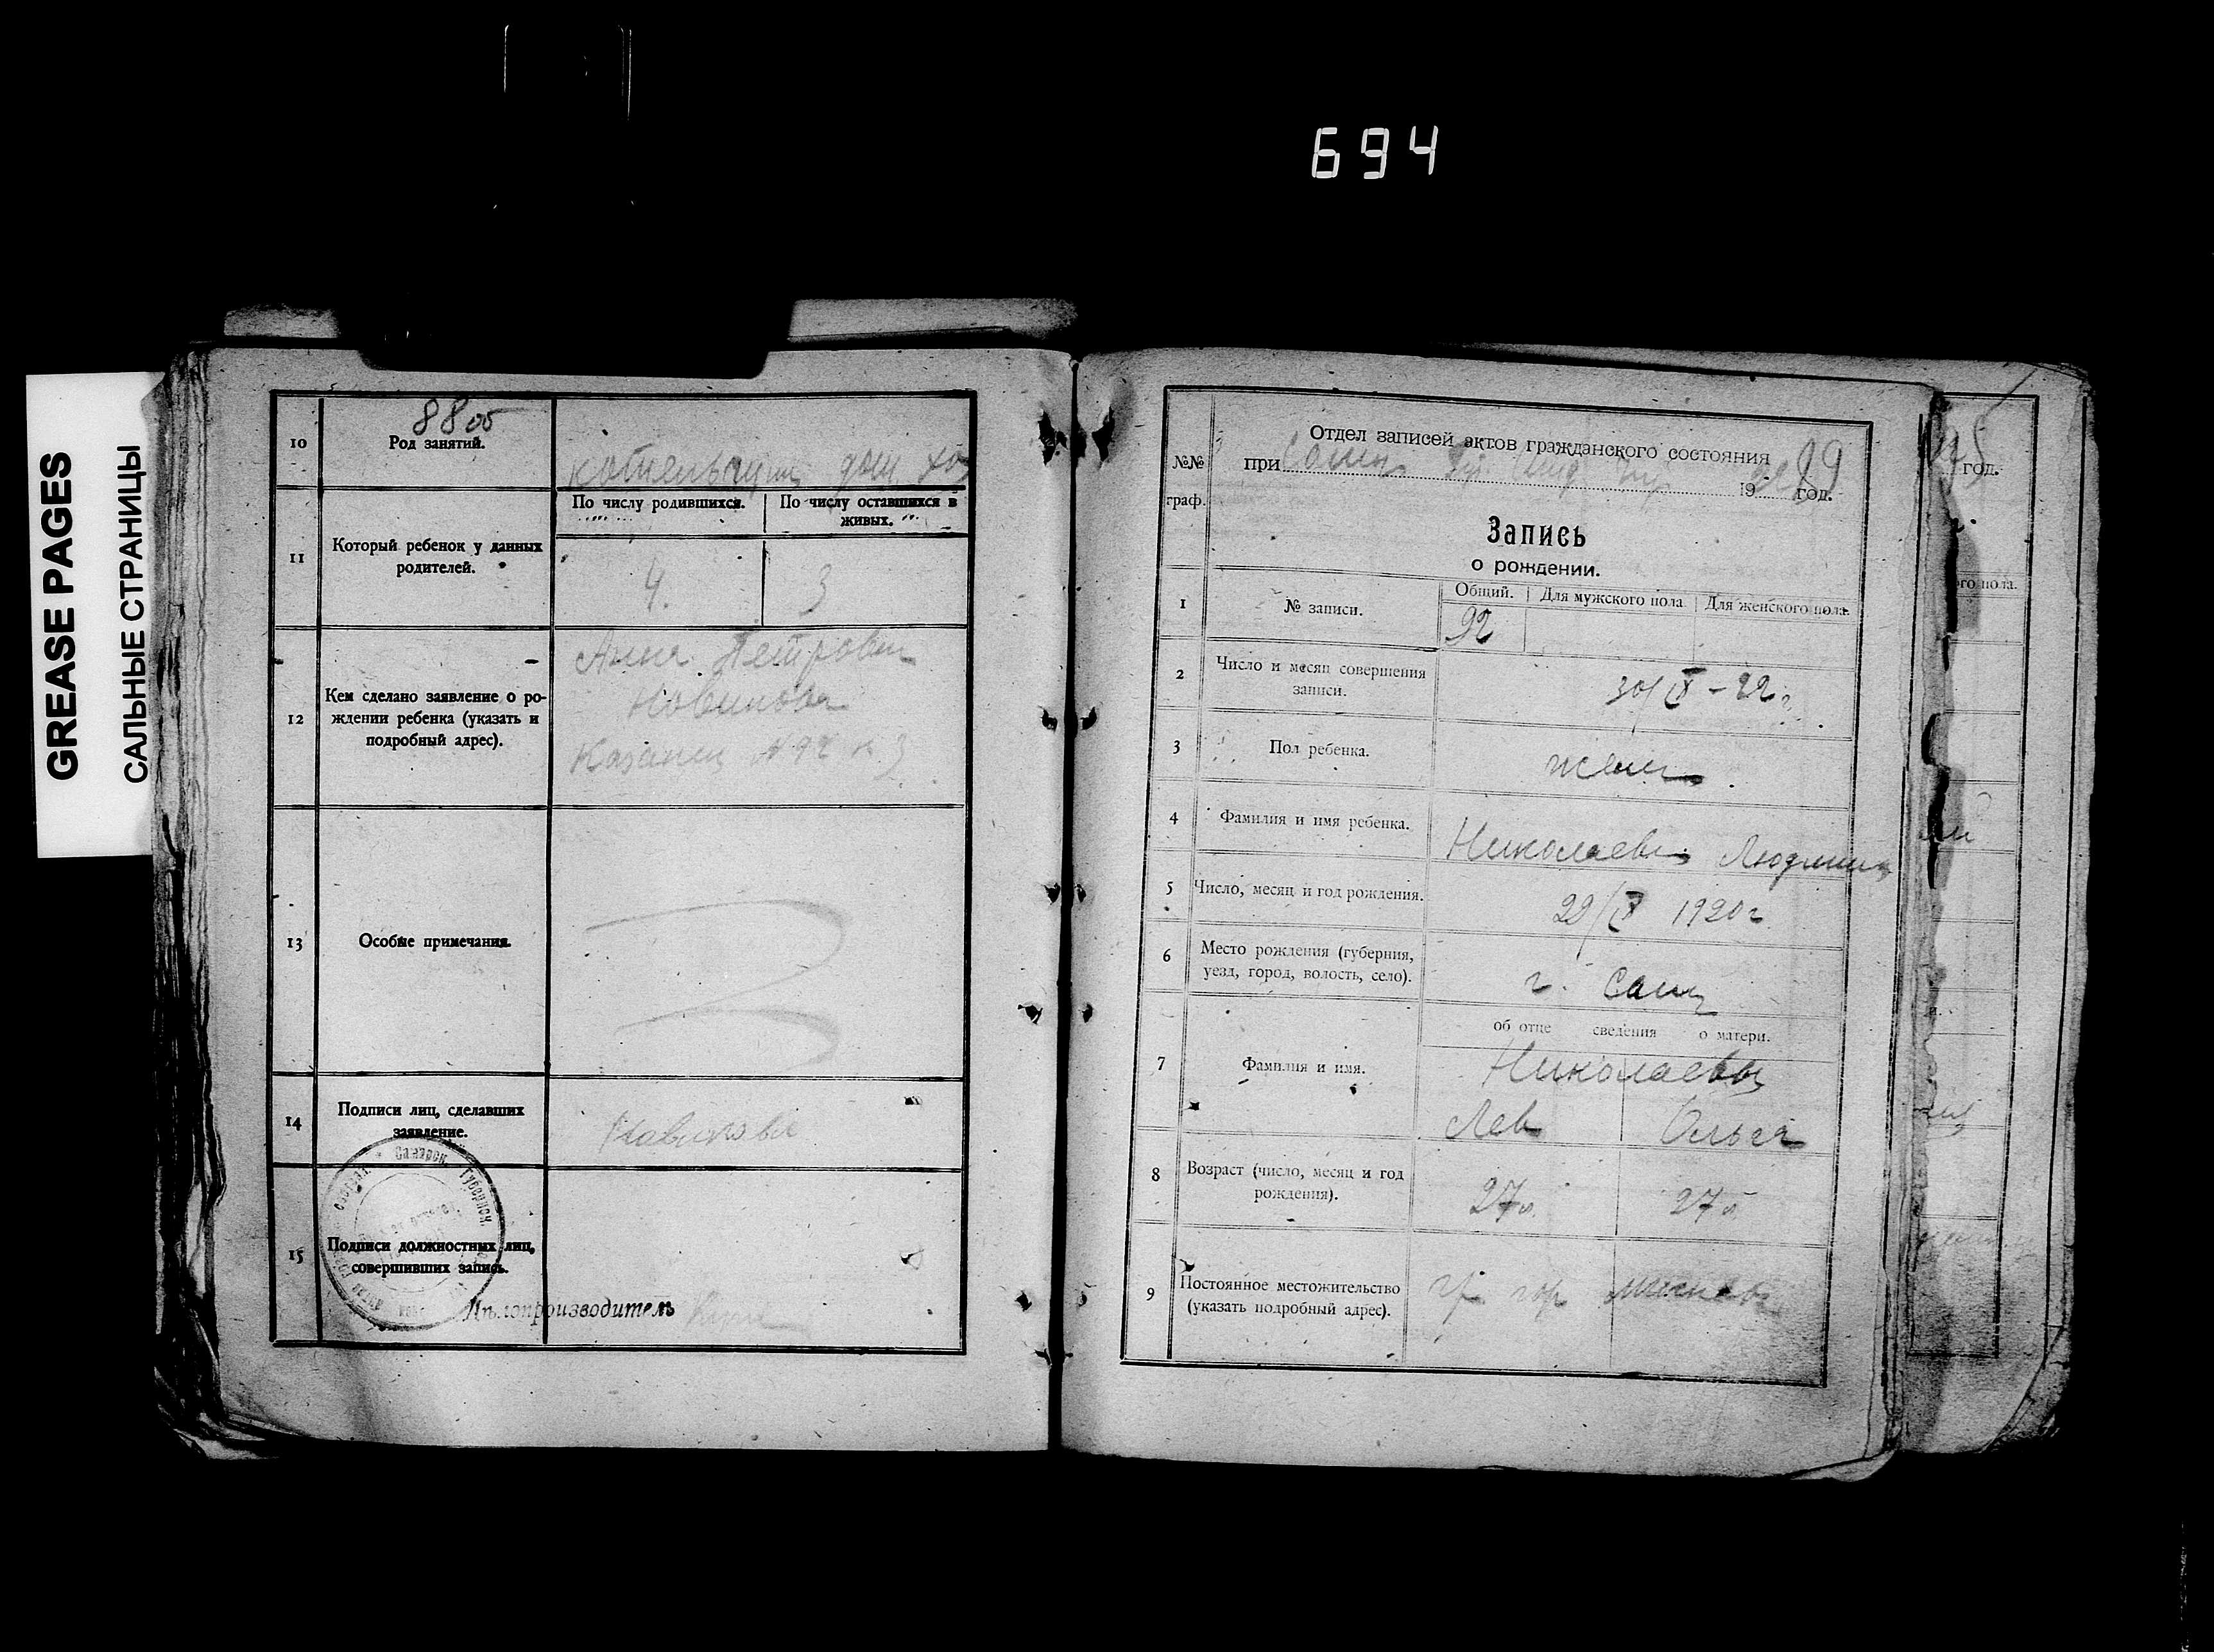 694
GREASE PAGES
САЛЬНЫЕ СТРАНИЦЫ
88 об
10
Род занятий.
дом хоз
11
Который ребенок у данных
родителей.
По числу родившихся.
По числу оставшихся в
живых.
4.
3
12
Кем сделано заявление о ро-
ждении ребенка (указать и
подробный адрес).
Анна Петровн
Новикова
Казанск № 92 к 3
13
Особые примечания.
14
Подписи лиц, сделавших
заявление.
Новикова
15
Подписи должностных лиц,
совершивших запись.
Самарск. Губернск.
Дѣлопроизводитель
№№
граф.
Отдел записей актов гражданского состояния
при
19 год.
89
Запись
о рождении.
1
№ записи.
Общий.
Для мужского пола
Для женского пола.
92
2
Число и месяц совершения
записи.
30/IX – 22 г.
3
Пол ребенка.
женск
4
Фамилия и имя ребенка.
Николаева Людмила
5
Число, месяц и год рождения.
29/IX 1920 г
6
Место рождения (губерния,
уезд, город, волость, село).
г. Сам
об отце сведения о матери.
7
Фамилия и имя.
Николаевы
Лев
Ольга
8
Возраст (число, месяц и год
рождения).
27 л
27 л
9
Постоянное местожительство
(указать подробный адрес).
гр гор
год.
ого пола.